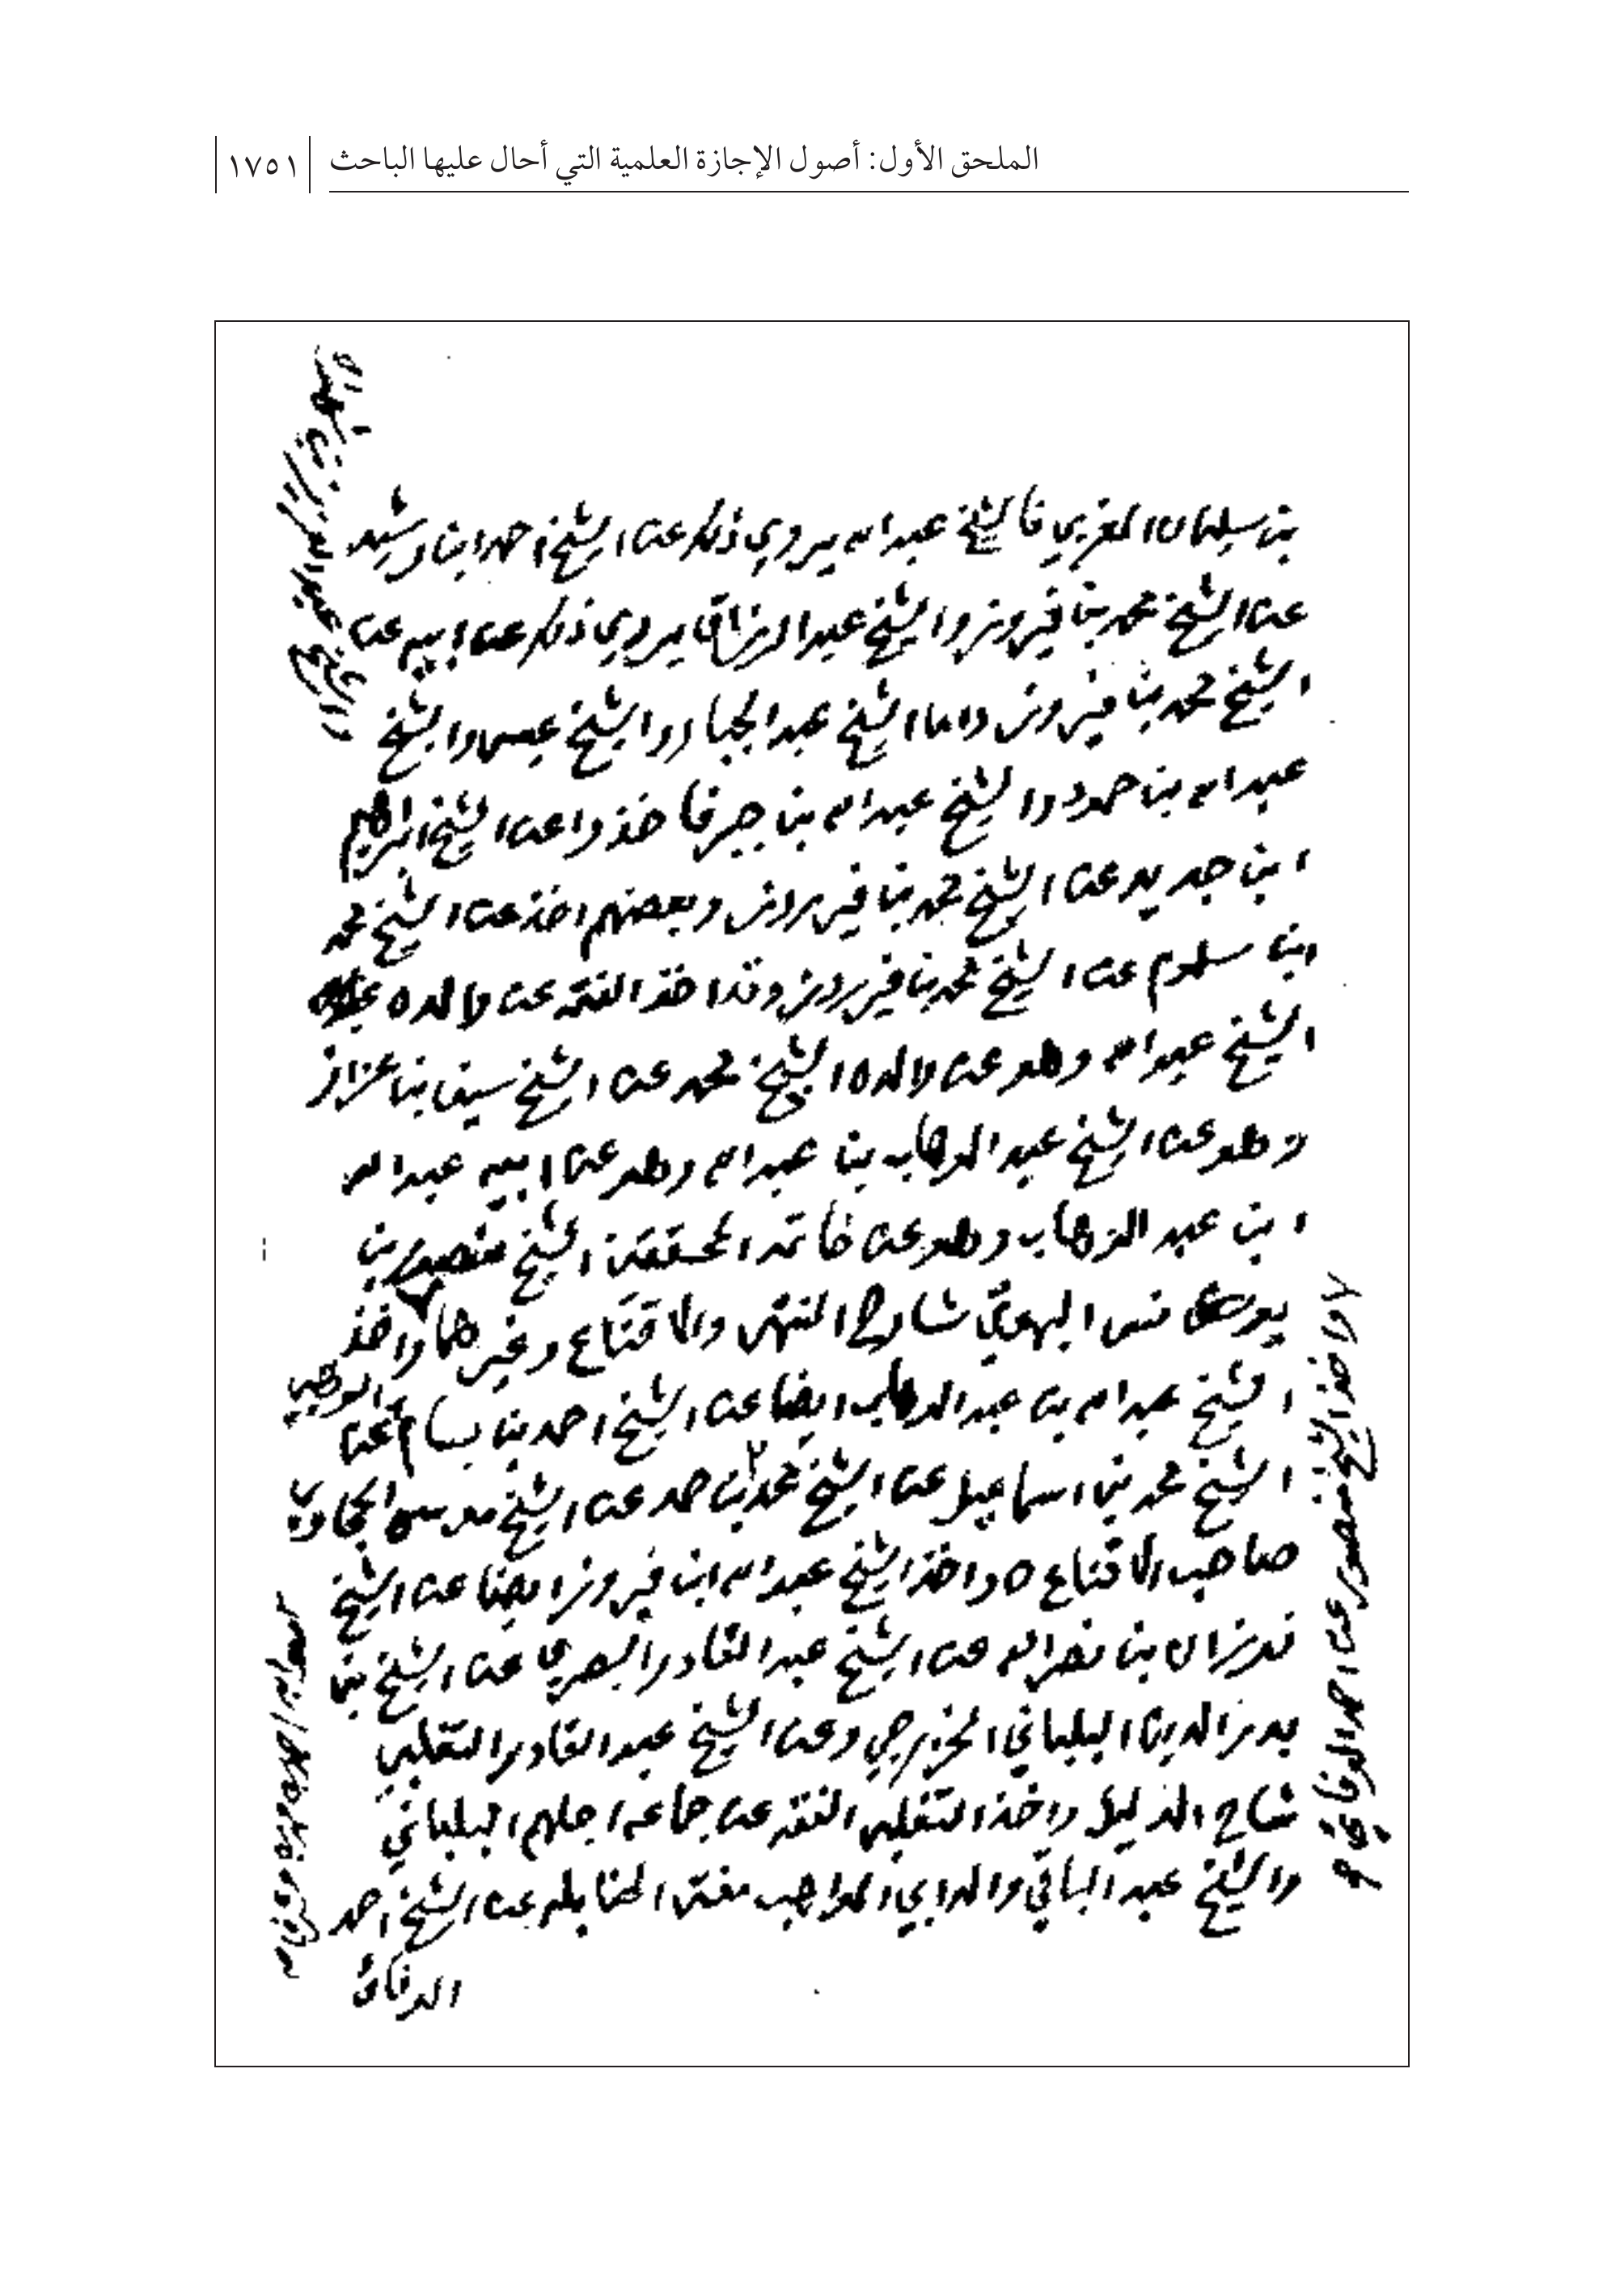 الملحق الأول: أصول الإجازة العلمية التي أحال عليها الباحث
١٧٥١
بن سليمان المغربي فالشيخ عبد الله يروي ذلك عن الشيخ احمد ابن رشيد
عن الشيخ محمد بن فيروز والشيخ عبد الرزاق يروي ذلك عن ابيه عن
الشيخ محمد بن فيروز واما الشيخ عبد الجبار والشيخ عيسى والشيخ
عبد الله بن حمود والشيخ عبد الله بن جبر فاخذوا عن الشيخ ابراهيم
ابن جديد عن الشيخ محمد بن فيروز وبعضهم اخذ عن الشيخ محمد
ابن سلوم عن الشيخ محمد بن فيروز وقد اخذ الفقه عن والده
الشيخ عبد الله وهو عن والده الشيخ محمد عن الشيخ سيف بن عزاز
وهو عن الشيخ عبد الوهاب بن عبد الله وهو عن ابيه عبد الله
ابن عبد الوهاب وهو عن خاتمة المحققين الشيخ منصور بن
يونس البهوتي شارح المنتهى والاقناع وغيرهما واخذ
الشيخ عبد الله بن عبد الوهاب ايضا عن الشيخ احمد بن بسام عن
الشيخ محمد بن اسماعيل عن الشيخ محمد بن احمد عن الشيخ موسى الحجاوي
صاحب الاقناع ه واخذ الشيخ عبد الله ابن فيروز ايضا عن الشيخ
فوزان بن نصر الله عن الشيخ عبد القادر البصري عن الشيخ بن
بدر الدين البلباني الخزرجي وعن الشيخ عبد القادر التغلبي
شارح الدليل واخذ التغلبي الفقه عن جماعه اجلهم البلباني
والشيخ عبد الباقي والد ابي المواهب مفتي الحنابله عن الشيخ احمد
الوفائي
واخذ الشيخ منصور عن احمد الوفائي